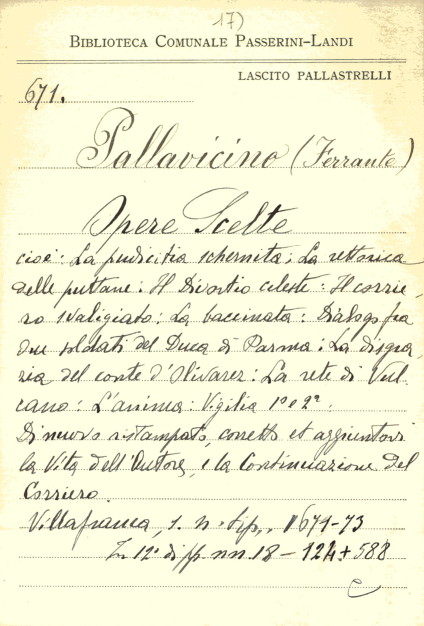 17)
BIBLIOTECA COMUNALE PASSERINI-LANDI
LASCITO PALLASTRELLI
671.
Pallavicino (Ferrante)
Opere Scelte
cioè: La pudicitia schernita: La rettorica
delle puttane: Il Divortio celeste: Il corrie
ro svaligiato: La baccinata: Dialogo fra
due soldati del Duca di Parma: La disgra
zia del conte d'Olivarez: La rete di Vul
cano: L'anima: Vigilia 1ª e 2ª.
Di nuovo ristampato, corretto et aggiuntovi
la Vita dell'Autore, e la Continuazione del
Corriero.
Villafranca, s. n. tip., 1671-73
In 12º di pp. nn. 18 - 124 + 588